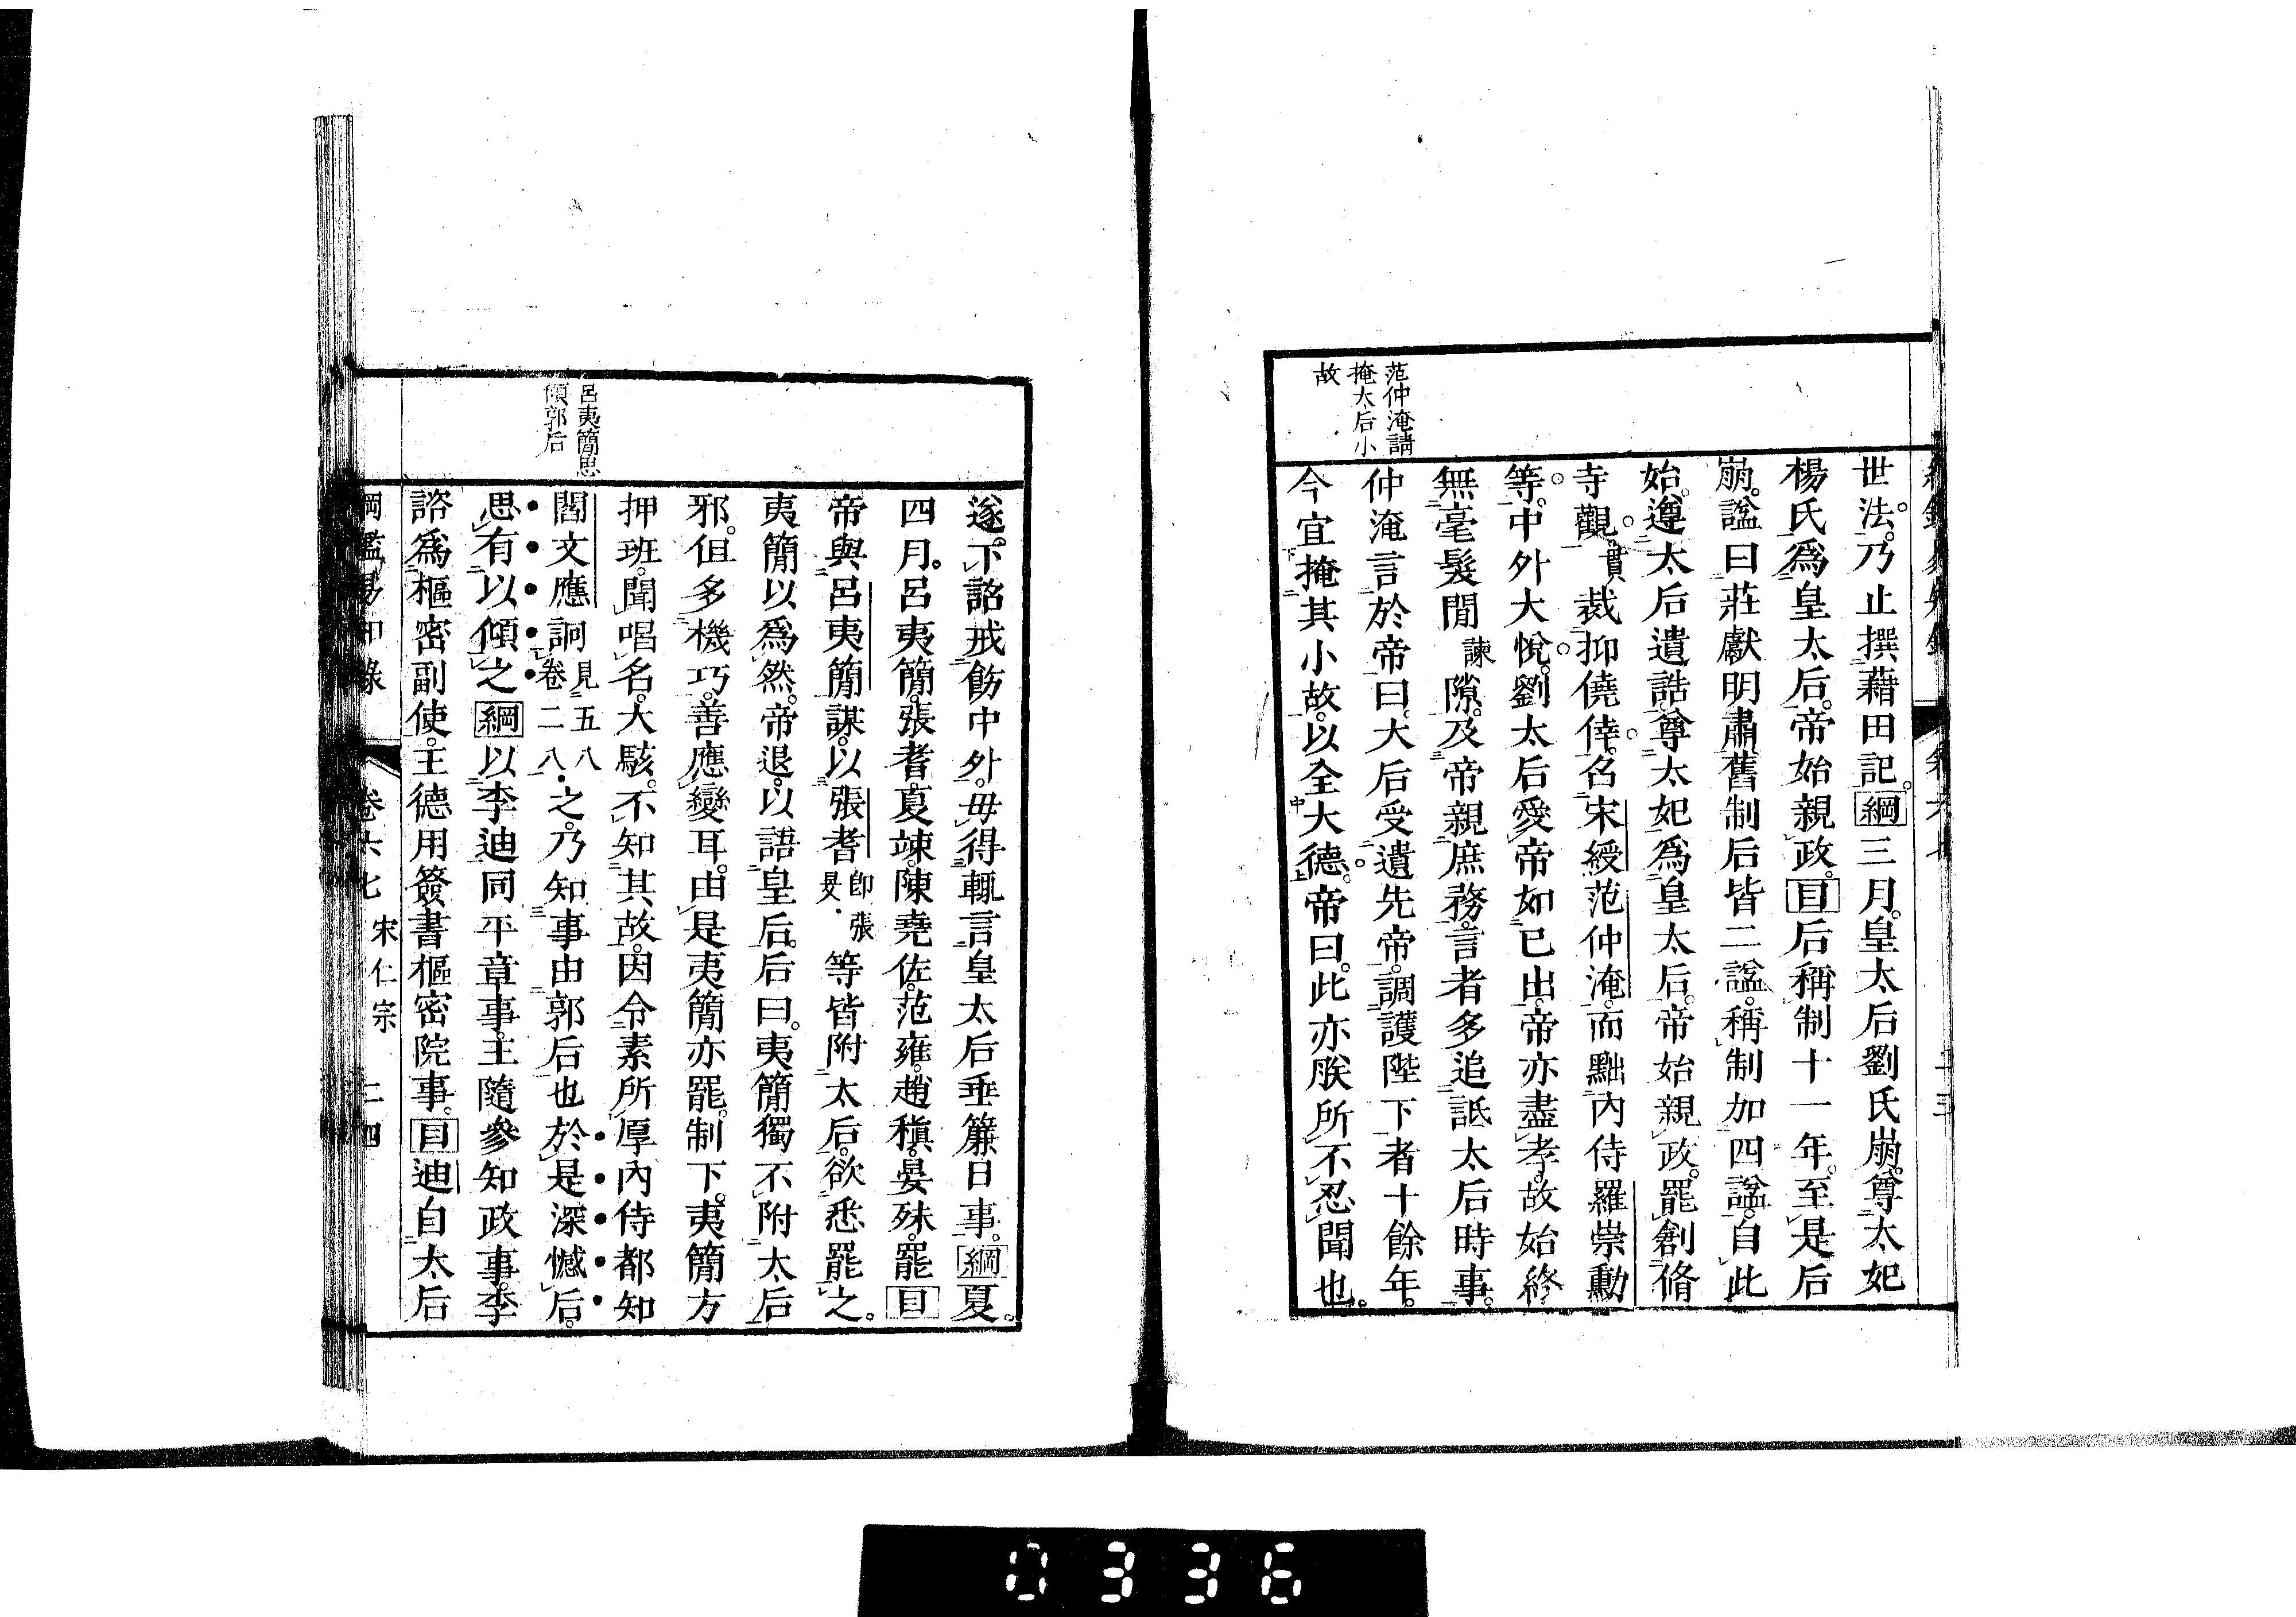 范仲淹請
掩太后小
故
世法。乃止撰藉田記。綱三月。皇太后劉氏崩。尊太妃
楊氏爲皇太后。帝始親政。目后稱制十一年。至是后
崩。諡曰莊獻明肅。舊制后皆二諡。稱制加四諡。自此
始。遵太后遺誥。尊太妃爲皇太后。帝始親政。罷創脩
寺觀。貫裁抑僥倖。召宋綬范仲淹。而黜內侍羅崇勳
等。中外大悅。劉太后愛帝如已出。帝亦盡孝。故始終
無毫髮間諫隙。及帝親庶務。言者多追詆太后時事。
仲淹言於帝曰。大后受遺先帝。調護陛下者十餘年。
今宜掩其小故。以全大德。帝曰。此亦朕所不忍聞也。
呂夷簡思
傾郭后
遂下詔戒飭中外。毋得輒言皇太后垂簾日事。綱夏。
四月。呂夷簡。張耆。夏竦。陳堯佐。范雍。趙稹。晏殊。罷目
帝與呂夷簡謀。以張耆卽張旻等皆附太后。欲悉罷之。
夷簡以爲然。帝退。以語皇后。后曰。夷簡獨不附太后
邪。但多機巧。善應變耳。由是夷簡亦罷。制下。夷簡方
押班。聞唱名。大駭。不知其故。因令素所厚內侍都知
閻文應訶見五八卷二八之。乃知事由郭后也。於是深憾后。
思有以傾之綱以李迪同平章事。王隨參知政事。李
諮爲樞密副使。王德用簽書樞密院事。目迪自太后
綱鑑易知錄 卷六七 宋仁宗 二四
0336